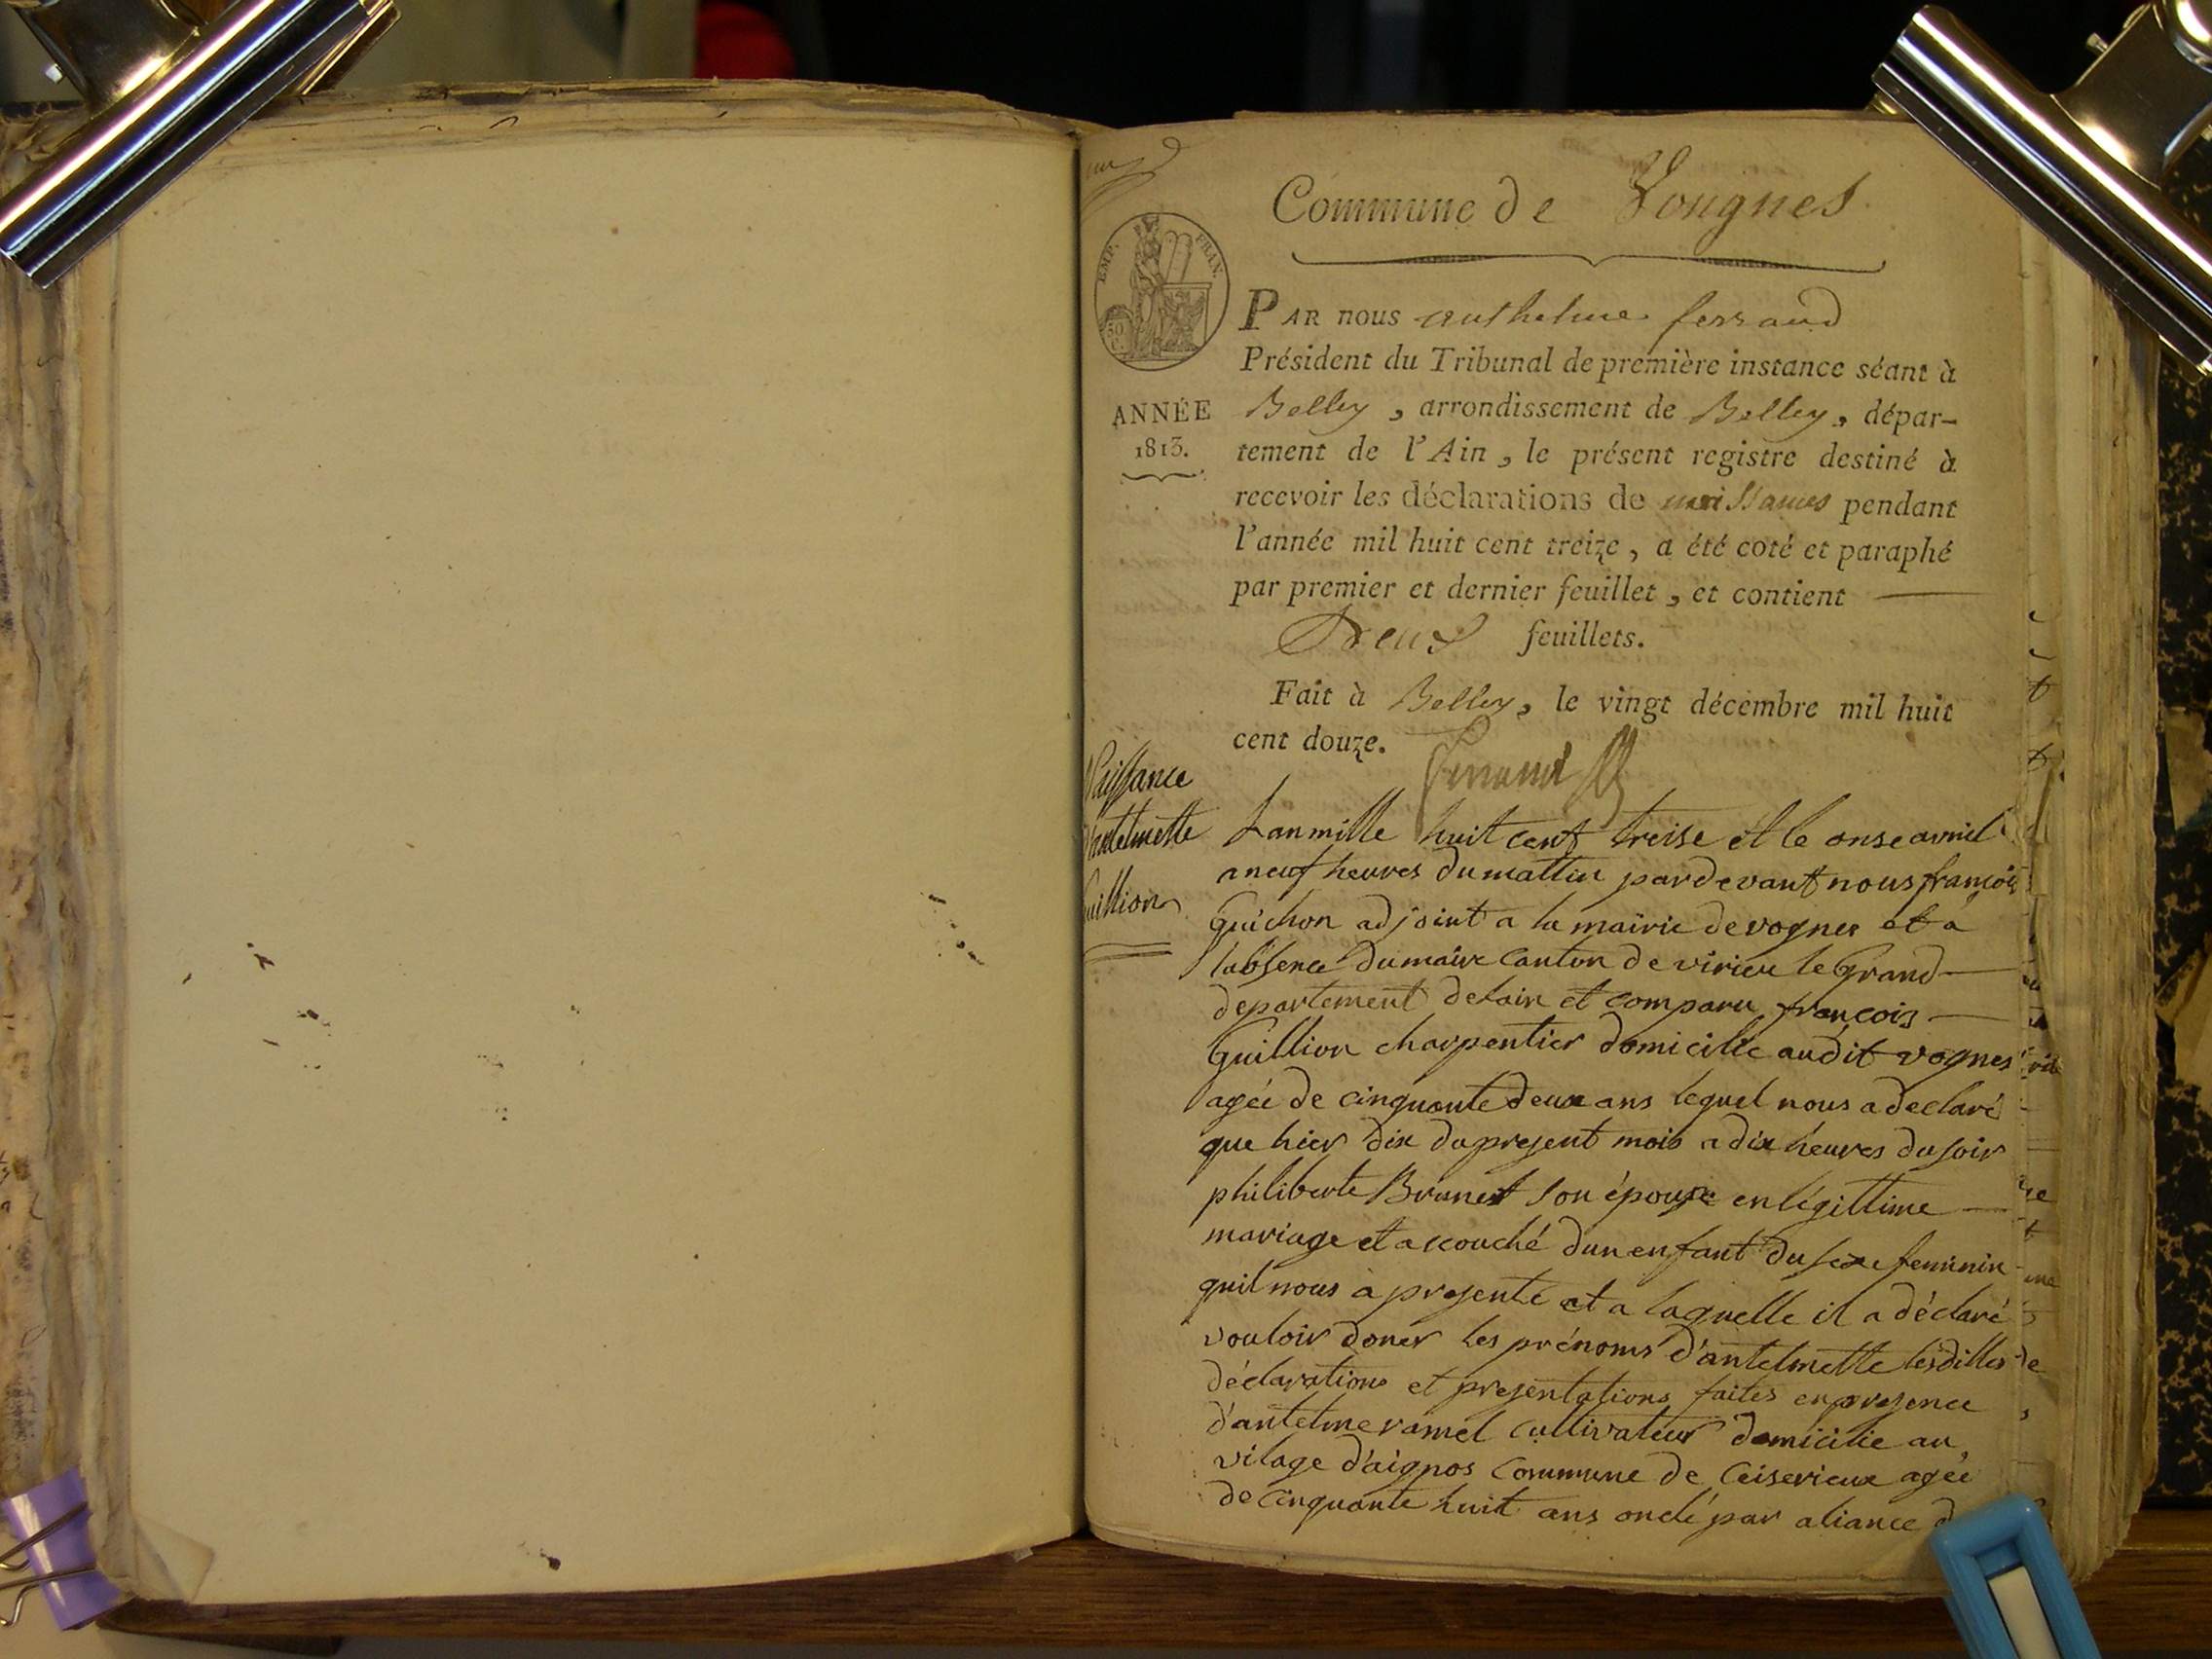 Commune de Vongnes
EMP. FRAN.
50 C.
PAR nous anthelme ferrand
Président du Tribunal de première instance séant à
Belley, arrondissement de Belley, dépar-
ANNÉE
1813.
tement de l'Ain, le présent registre destiné à
recevoir les déclarations de naissances pendant
l'année mil huit cent treize, a été coté et paraphé
par premier et dernier feuillet, et contient
Deux feuillets.
Fait à Belley, le vingt décembre mil huit
cent douze.
Ferrand
Naissance
d'antelmette
Guillion
Lan mille huit cent treise et le onse avril
a neuf heures du mattin pardevant nous françois
Guichon adjoint a la mairie de vognes et a
labsence du maire Canton de virieu le Grand
departement delain et comparu françois
Guillion charpentier domicilié audit vognes
agée de cinquante deux ans lequel nous a declaré
que hier dix du present mois a dix heures du soir
philiberte Brunet son épouse en légittime
mariage et acouché dun enfant du sexe feminin
quil nous à presenté et a laquelle il a déclaré
vouloir doner les prénoms d'antelmette lesdittes
déclarations et presentations faites en presence
d'antelme ramel cultivateur domicilié au
vilage d'aignos Commune de Ceiserieux agée
de Cinquante huit ans oncle par aliance